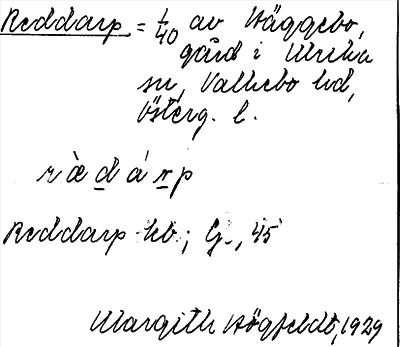 Reddarp = 1/40 av Häggebo,
gård i Ulrika
sn, Valkebo hd,
Österg. l.
r à d á r p
Reddarp kb; G, 45
Margith Högfeldt, 1929